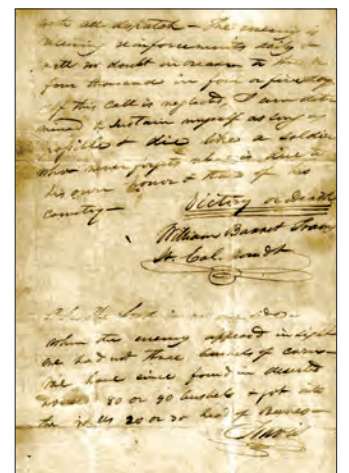 with all dispatch — The enemy is
receiving reinforcements daily &
will no doubt increase to three or
four thousand in four or five days.
If this call is neglected, I am deter
mined to sustain myself as long as
possible & die like a soldier
who never forgets what is due to
his own honor & that of his
country —
Victory or Death
William Barret Travis
Lt. Col. comdt
P.S. The Lord is on our side —
When the enemy appeared in sight
we had not three bushels of corn —
We have since found in deserted
houses 80 or 90 bushels & got into
the walls 20 or 30 head of Beeves —
Travis